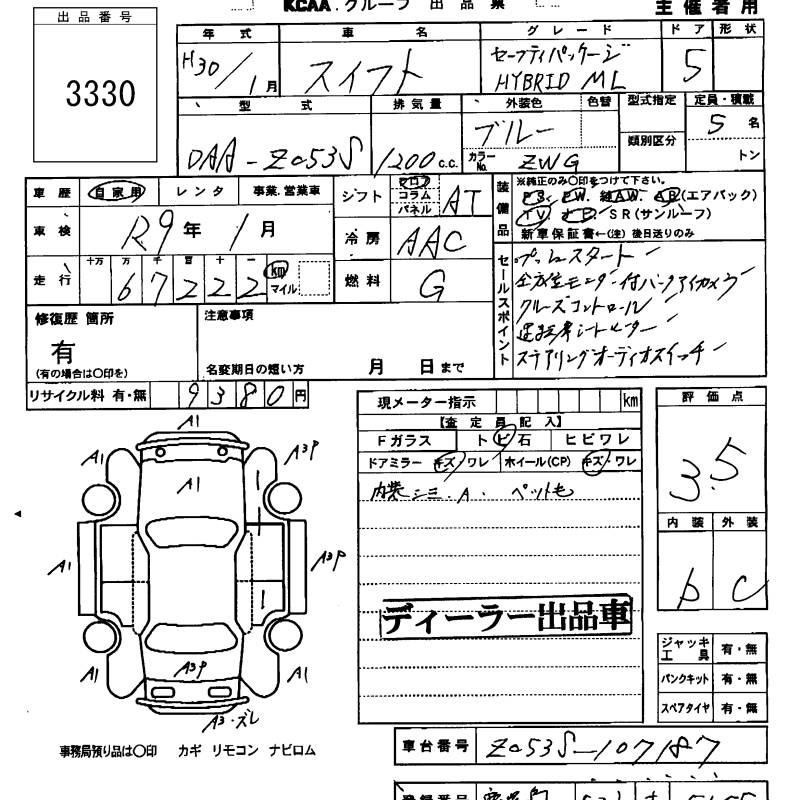 KCAA.グループ 出品票 主催者用
出品番号
3330
年式 車名 グレード ドア 形状
H30/1月 スイフト セーフティパッケージ HYBRID ML 5
型式 排気量 外装色 色替 型式指定 定員・積載
DAA-ZC53S 1200c.c. ブルー 5名
カラーNo. ZWG 類別区分 トン
車歴 自家用 レンタ 事業.営業車 シフト フロア コラム パネル AT
装備品 ※純正のみ〇印をつけて下さい。
P.S. P.W. 純AW. AB(エアバック)
TV. ナビ. SR(サンルーフ)
新車保証書←(注)後日送りのみ
車検 R9年1月 冷房 AAC
走行 十万 万 千 百 十 一 km マイル 燃料 G
67222
セールスポイント
プッシュスタート
全方位モニター付バックアイカメラ
クルーズコントロール
運転席シートヒーター
ステアリングオーディオスイッチ
修復歴 箇所 注意事項
有
(有の場合は〇印を) 名変期日の短い方 月 日まで
リサイクル料 有・無 9380円
現メーター指示 km
【査定員記入】
Fガラス トビ石 ヒビワレ
ドアミラー キズ・ワレ ホイール(CP) キズ・ワレ
内装シミ.A. ペット毛
ディーラー出品車
評価点
3.5
内装 外装
b C
ジャッキ工具 有・無
パンクキット 有・無
スペアタイヤ 有・無
A1
A1 A3P
A1
A1 A3P
A1 A3P A1
A3・ズレ
事務局預り品は〇印 カギ リモコン ナビロム
車台番号 ZC53S-107187
登録番号